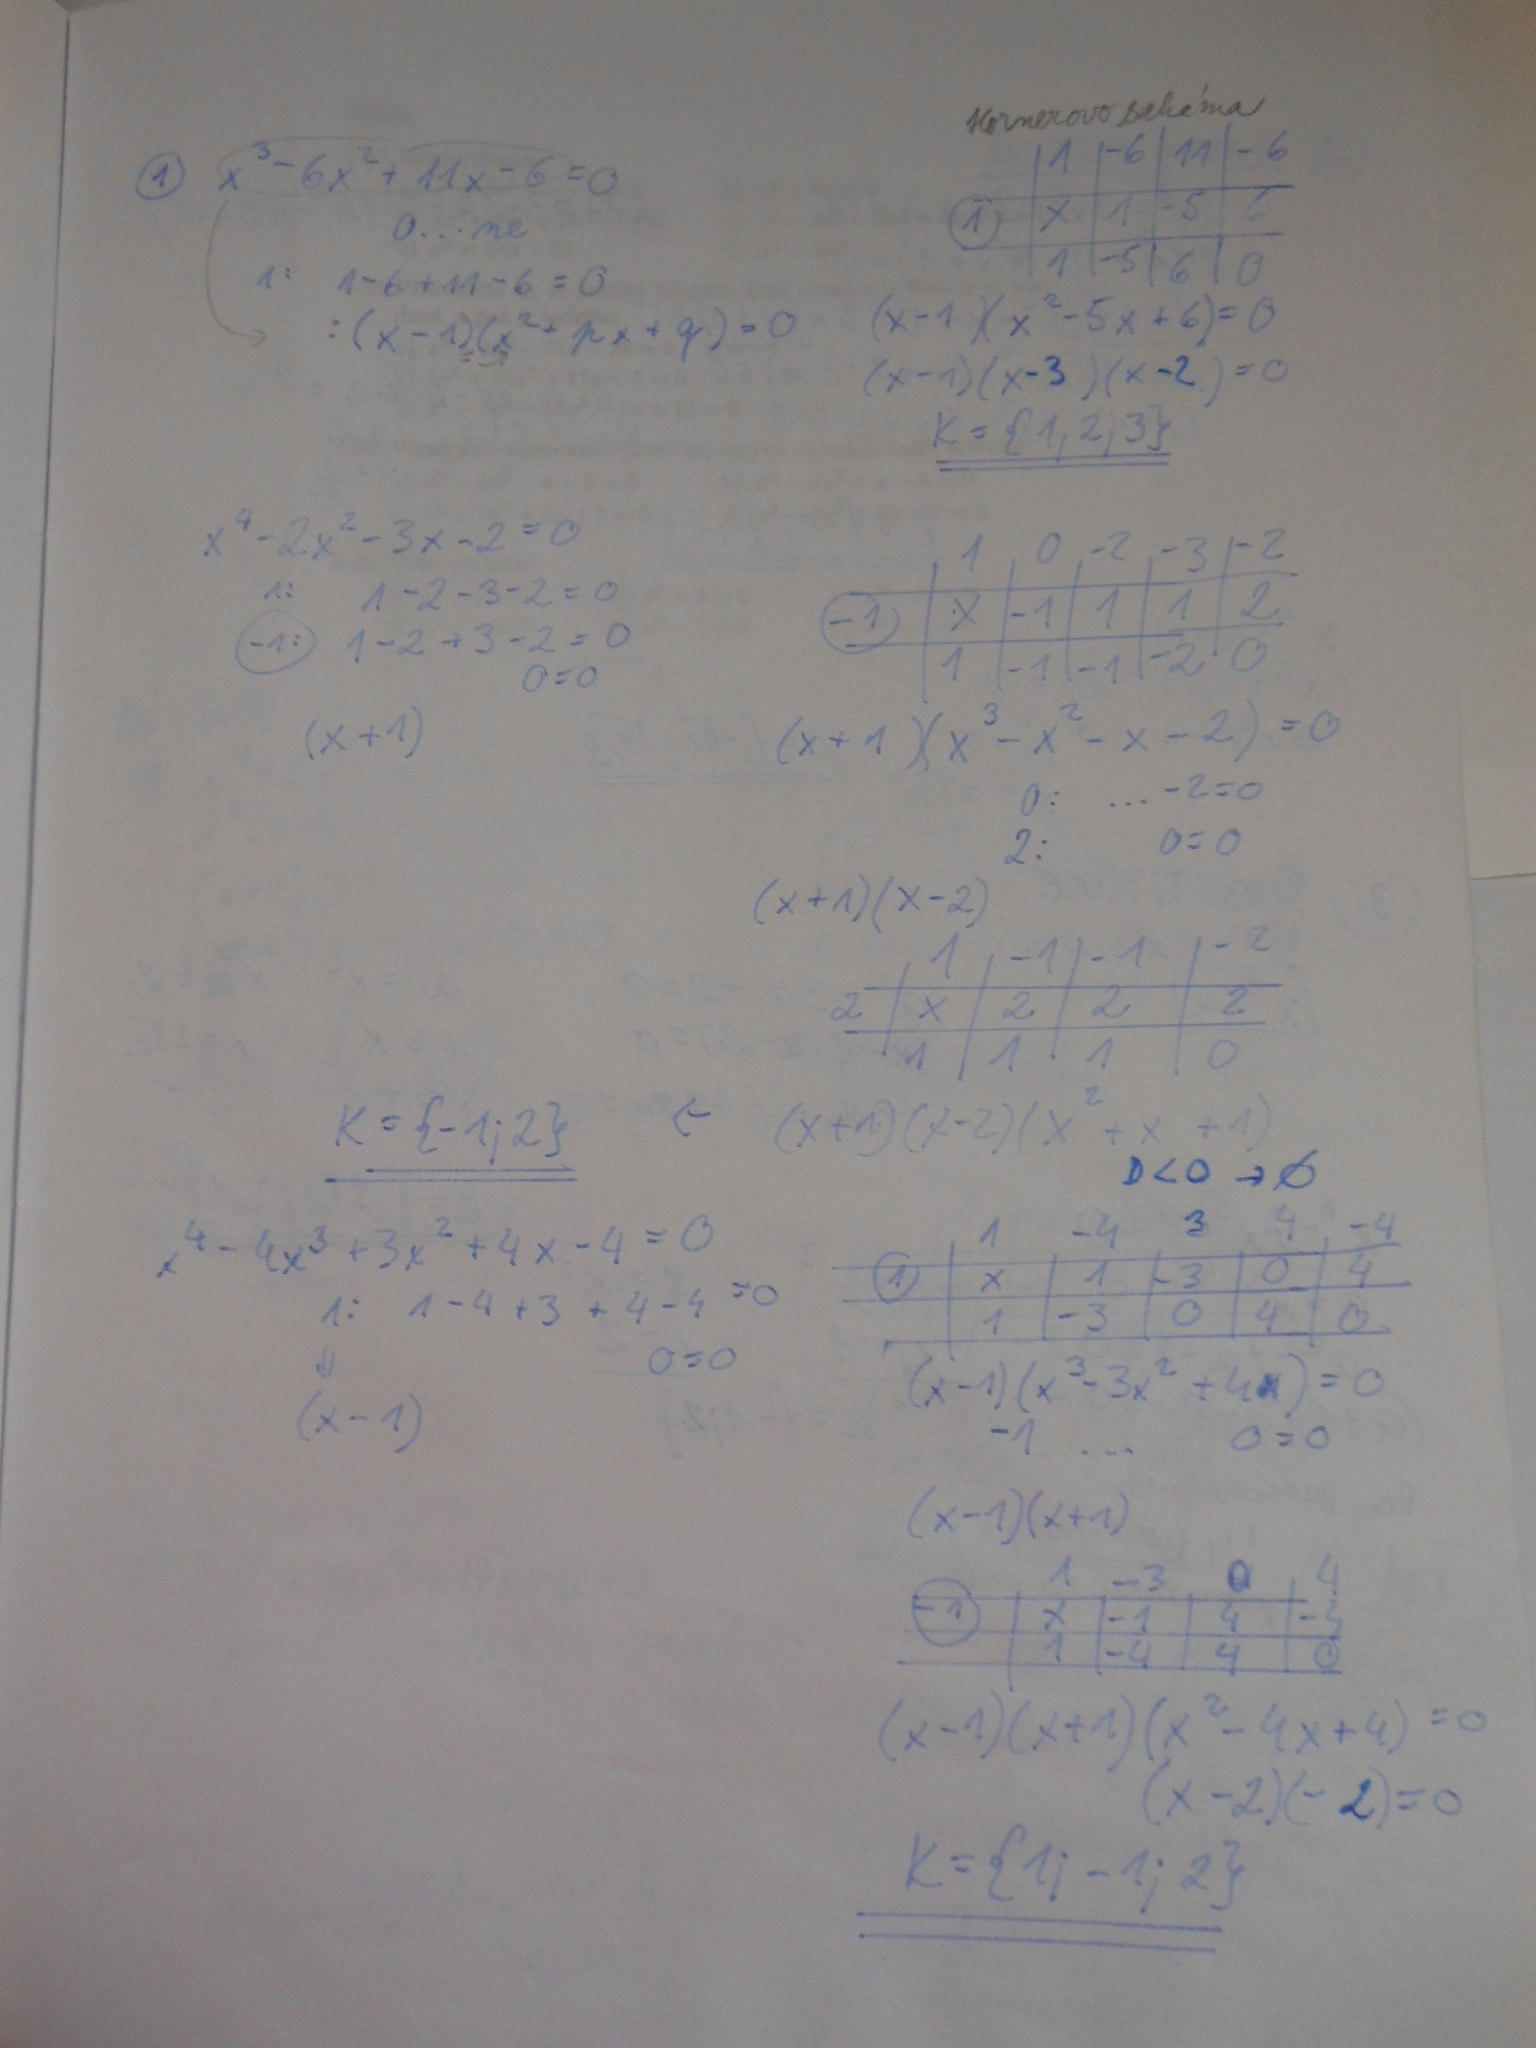 Hornerovo schéma
① x³ - 6x² + 11x - 6 = 0
0...ne
1: 1-6+11-6=0
:(x-1)(x²+px+q)=0
1 | -6 | 11 | -6
① | x | 1 | -5 | 6
1 | -5 | 6 | 0
(x-1)(x²-5x+6)=0
(x-1)(x-3)(x-2)=0
K={1,2,3}
x⁴-2x²-3x-2=0
1: 1-2-3-2=0
-1: 1-2+3-2=0
0=0
(x+1)
1 0 -2 -3 -2
-1 | x | -1 | 1 | 1 | 2
1 | -1 | -1 | -2 | 0
(x+1)(x³-x²-x-2)=0
0: ... -2=0
2: 0=0
(x+1)(x-2)
1 | -1 | -1 | -2
2 | x | 2 | 2 | 2
1 | 1 | 1 | 0
K={-1;2} ← (x+1)(x-2)(x²+x+1)
D<0 → ∅
x⁴-4x³+3x²+4x-4=0
1: 1-4+3+4-4=0
⇓ 0=0
(x-1)
1 -4 3 4 -4
① | x | 1 | -3 | 0 | 4
1 | -3 | 0 | 4 | 0
(x-1)(x³-3x²+4)=0
-1 ... 0=0
(x-1)(x+1)
1 -3 0 4
-1 | x | -1 | 4 | -4
1 | -4 | 4 | 0
(x-1)(x+1)(x²-4x+4)=0
(x-2)(-2)=0
K={1;-1;2}